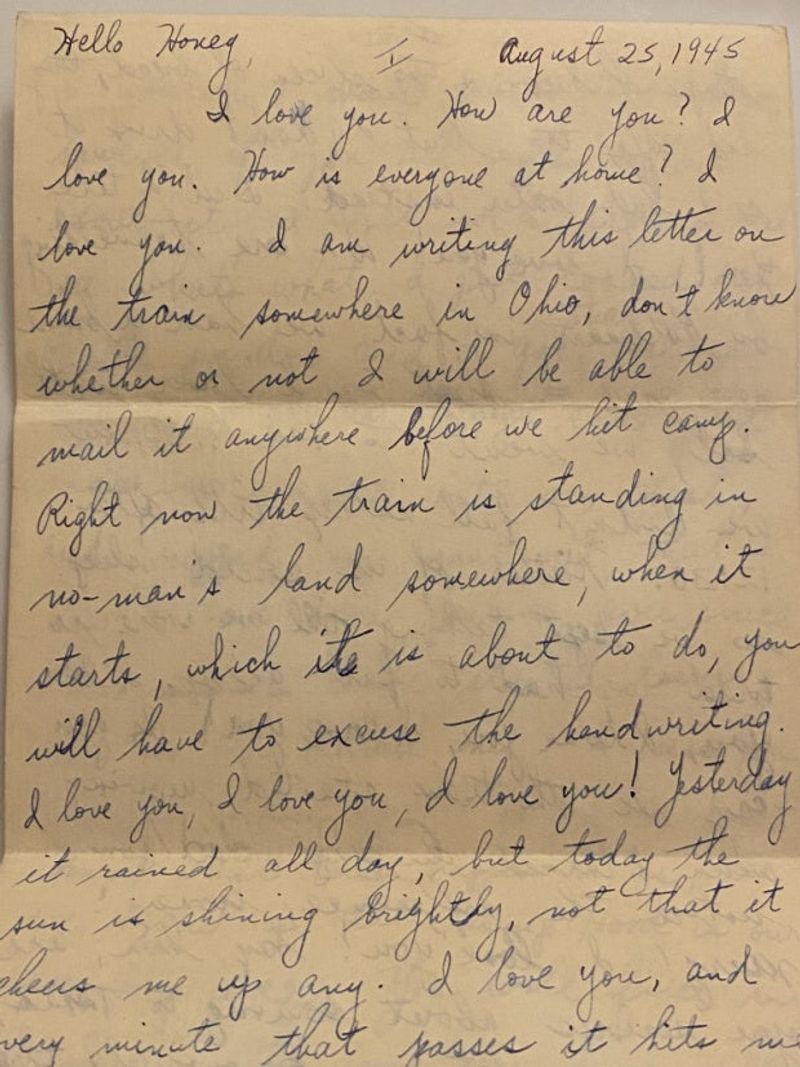 Hello Honey, I August 25, 1945
I love you. How are you? I
love you. How is everyone at home? I
love you. I am writing this letter on
the train somewhere in Ohio, don't know
whether or not I will be able to
mail it anywhere before we hit camp.
Right now the train is standing in
no-man's land somewhere, when it
starts, which is about to do, you
will have to excuse the handwriting.
I love you, I love you, I love you! Yesterday
it rained all day, but today the
sun is shining brightly, not that it
cheers me up any. I love you, and
every minute that passes it hits me